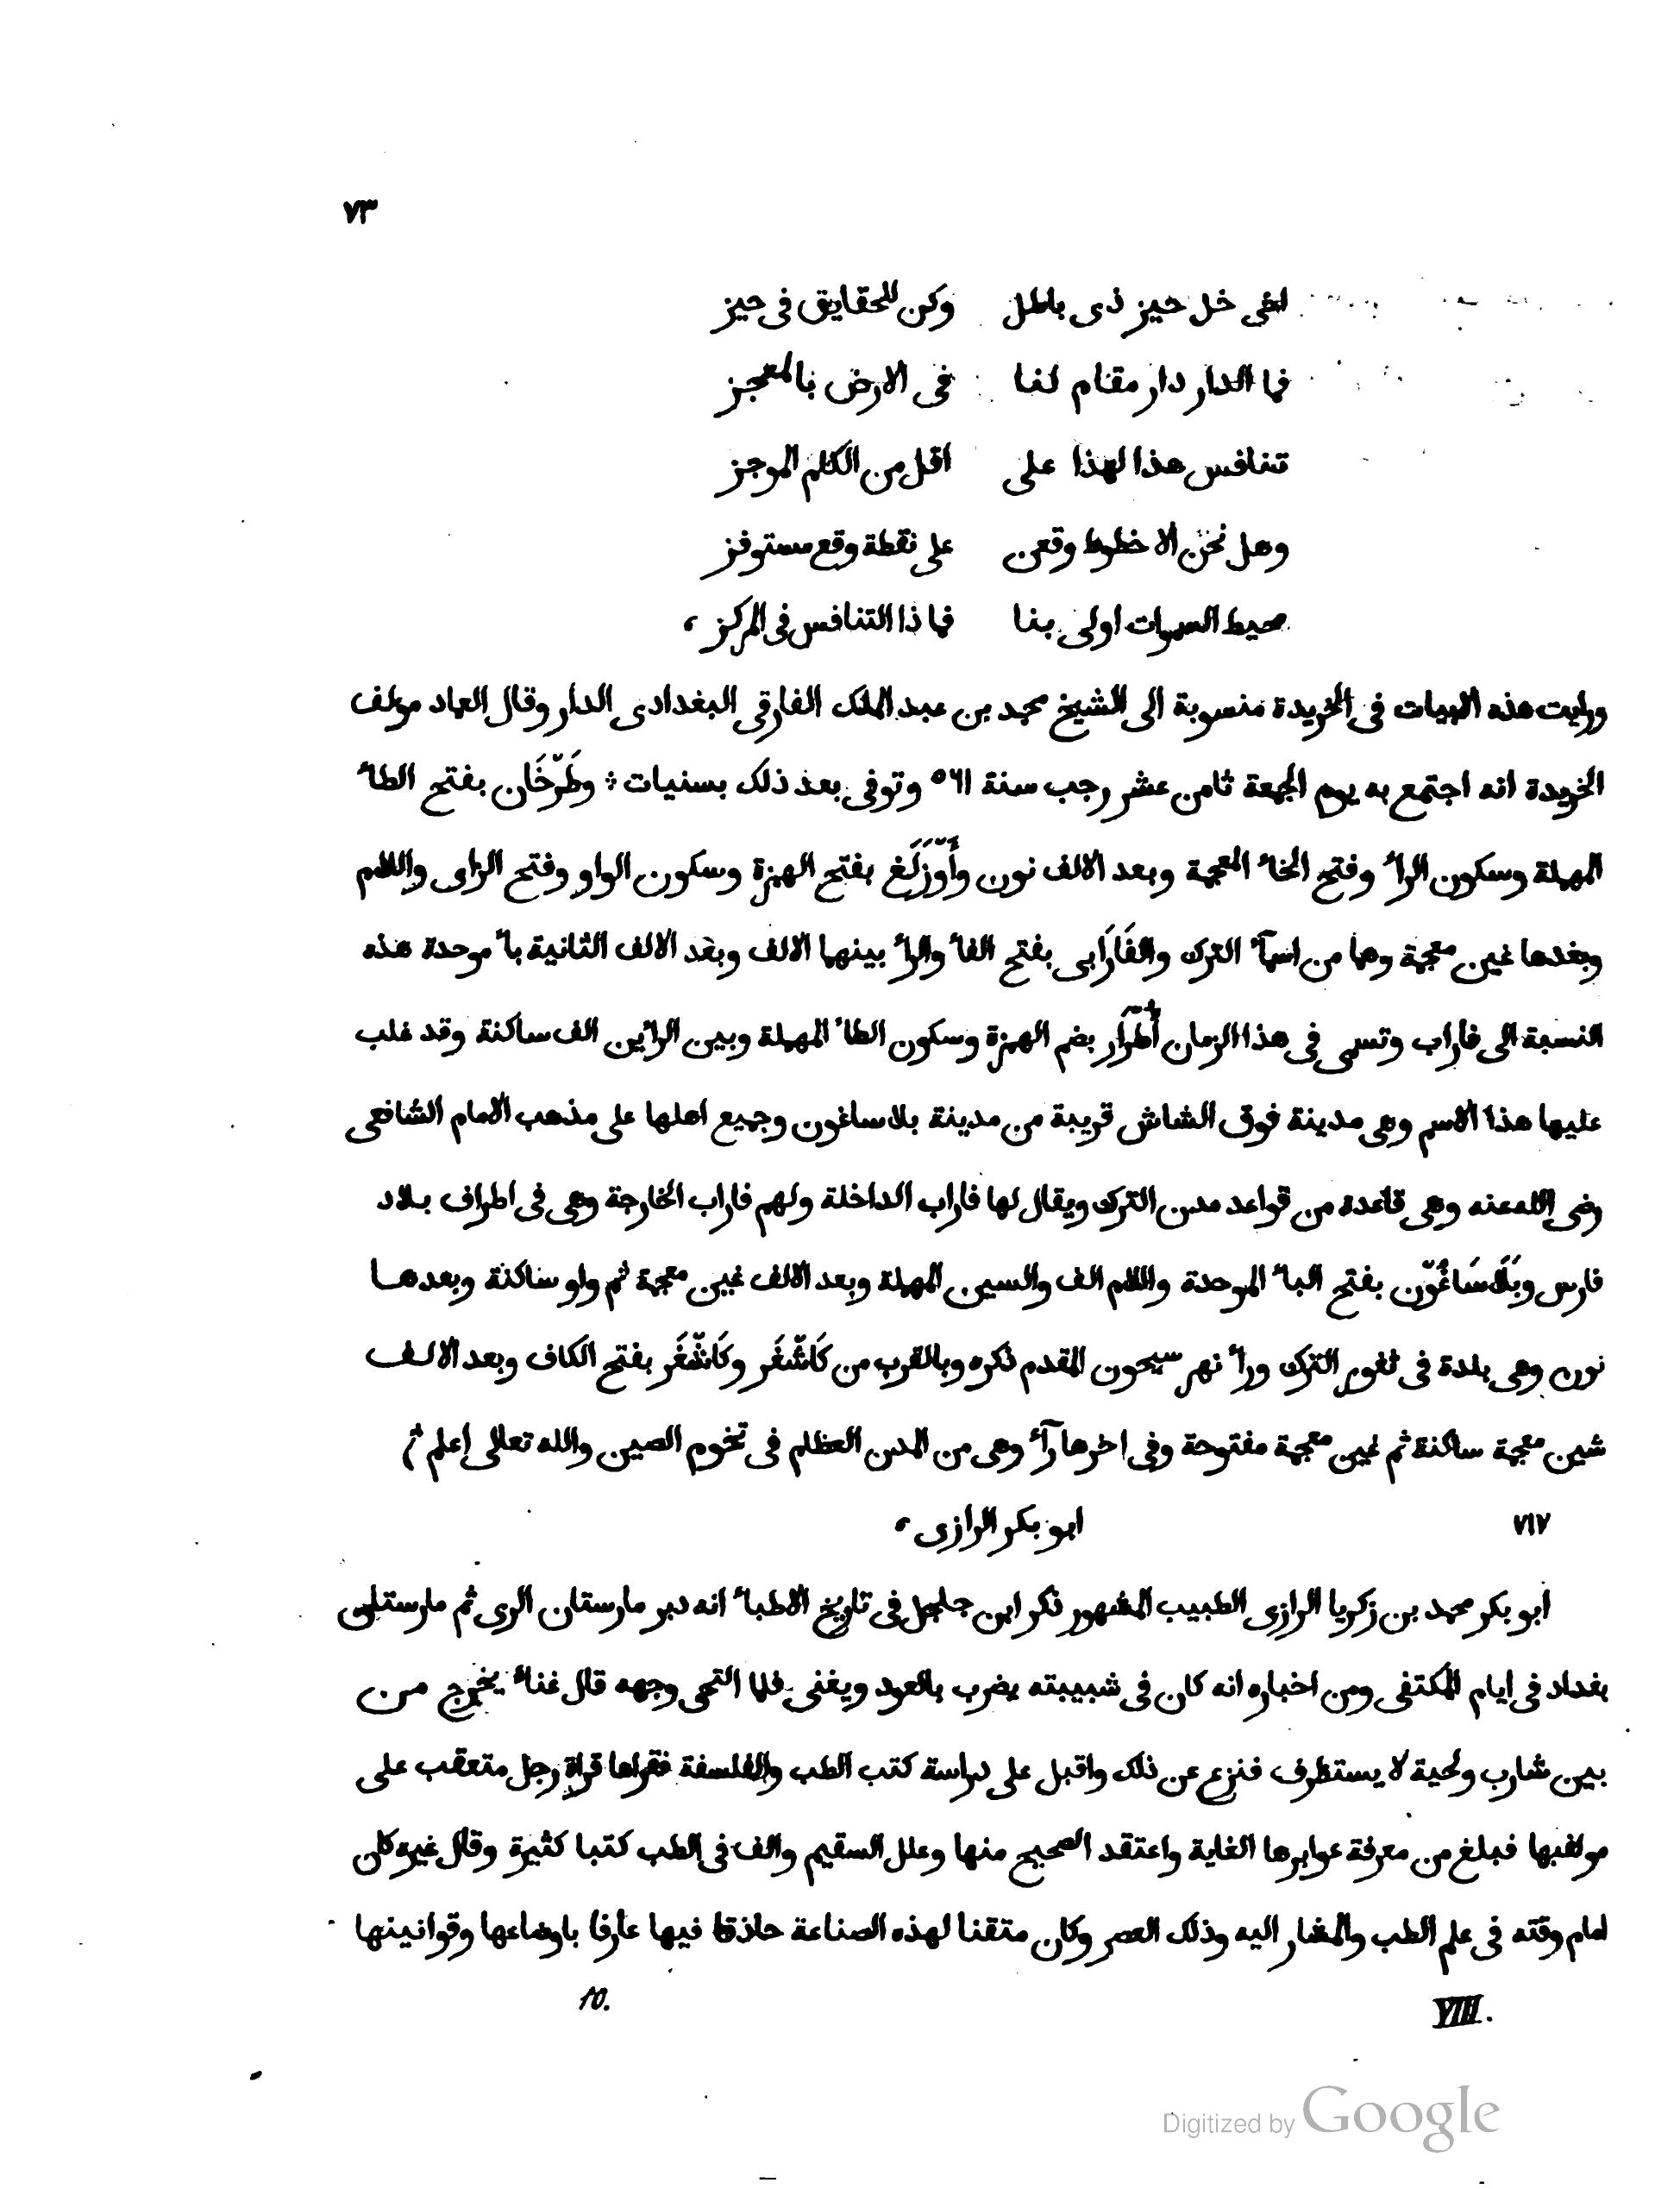 ٧٣
اخى خل حيز ذى باطل وكن للحقايق فى حيز
فما الدار دار مقام لنا فى الارض بالمعجز
تنافس هذا لهذا على اقل من الكلم الموجز
وهل نحن الا خطوط وقعن على نقطة وقع مستوفز
محيط السموات اولى بنا فما ذا التنافس فى المركز ،
ورايت هذه الابيات فى الخريدة منسوبة الى الشيخ محمد بن عبد الملك الفارقى البغدادى الدار وقال العماد مولف
الخريدة انه اجتمع به يوم الجمعة ثامن عشر رجب سنة ٥٦١ وتوفى بعد ذلك بسنيات ؛ وطَرْخَان بفتح الطاء
المهملة وسكون الراء وفتح الخاء المعجمة وبعد الالف نون وأَوْزَلَغ بفتح الهمزة وسكون الواو وفتح الزاى واللام
وبعدها غين معجمة وهما من اسمآء الترك والفَارَابى بفتح الفاء والراء بينهما الالف وبعد الالف الثانية باء موحدة هذه
النسبة الى فاراب وتسمى فى هذا الزمان أُطْرَار بضم الهمزة وسكون الطاء المهملة وبين الرائين الف ساكنة وقد غلب
عليها هذا الاسم وهى مدينة فوق الشاش قريبة من مدينة بلاساغون وجميع اهلها على مذهب الامام الشافعى
رضى الله عنه وهى قاعدة من قواعد مدن الترك ويقال لها فاراب الداخلة ولهم فاراب الخارجة وهى فى اطراف بلاد
فارس وبَلَاسَاغُوْن بفتح الباء الموحدة واللام الف والسين المهملة وبعد الالف غين معجمة ثم واو ساكنة وبعدها
نون وهى بلدة فى ثغور الترك وراء نهر سيحون المقدم ذكره وبالقرب من كَاشْغَر وكَاشْغَر بفتح الكاف وبعد الالف
شين معجمة ساكنة ثم غين معجمة مفتوحة وفى اخرها رآء وهى من المدن العظام فى تخوم الصين والله تعالى اعلم
٧١٧ ابو بكر الرازى ،
ابو بكر محمد بن زكريا الرازى الطبيب المشهور ذكر ابن جلجل فى تاريخ الاطباء انه دبر مارستان الرى ثم مارستان
بغداد فى ايام المكتفى ومن اخباره انه كان فى شبيبته يضرب بالعود ويغنى فلما التحى وجهه قال غناء يخرج من
بين شارب ولحية لا يستظرف فنزع عن ذلك واقبل على دراسة كتب الطب والفلسفة فقراها قراة رجل متعقب على
مولفيها فبلغ من معرفة غوايرها الغاية واعتقد الصحيح منها وعلل السقيم والف فى الطب كتبا كثيرة وقال غيره كان
امام وقته فى علم الطب والمشار اليه وذلك العصر وكان متقنا لهذه الصناعة حاذقا فيها عارفا باوضاعها وقوانينها
VIII. 10.
Digitized by Google